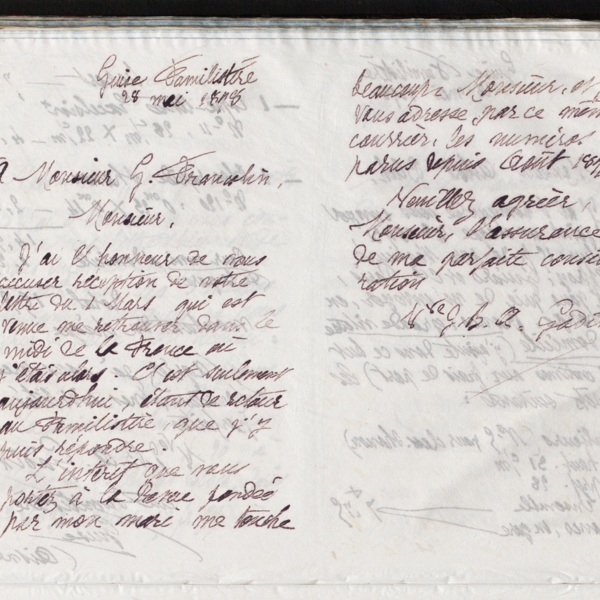 Guise Familistère
28 mai 1898
À Monsieur G. Francolin,
Monsieur,
J'ai l'honneur de vous
accuser réception de votre
lettre du 1 Mars qui est
venue me retrouver dans le
midi de la France où
j'étais alors. C'est seulement
aujourd'hui étant de retour
au Familistère que j'y
puis répondre.
L'intérêt que vous
portez à la Revue fondée
par mon mari me touche
beaucoup, Monsieur, et je
vous adresse par ce même
courrier, les numéros
parus depuis Août
Veuillez agréer,
Monsieur, l'assurance
de ma parfaite consi
ration
Vve J. B. A. Godin